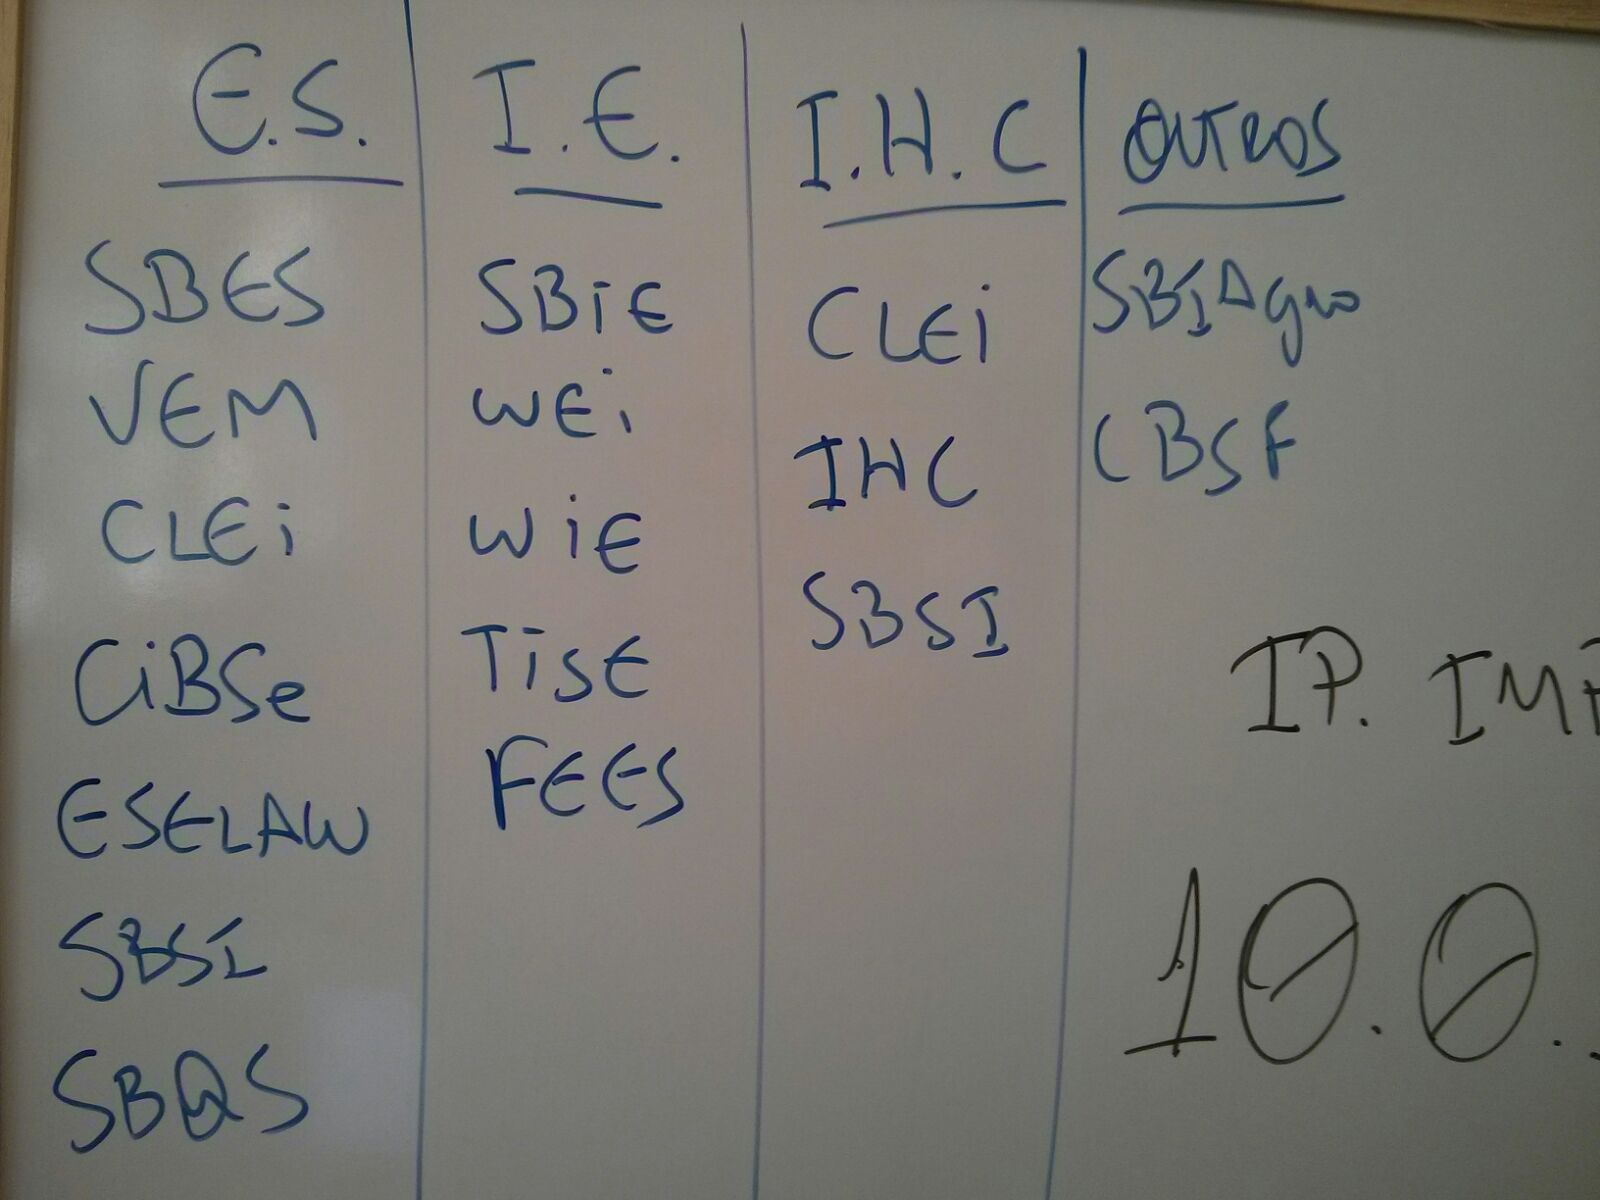 E.S.
SBES
VEM
CLEi
CiBSe
ESELAW
SBSI
SBQS
I.E.
SBiE
WEi
WiE
TiSE
FEES
I.H.C
CLEi
IHC
SBSI
OUTROS
SBIAgro
CBSF
IP.
10.0.